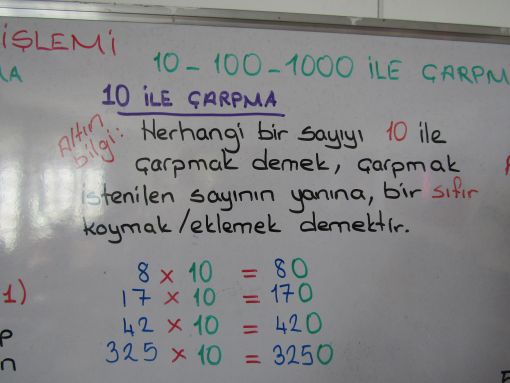 İŞLEMİ
10-100-1000 İLE ÇARPM
MA
10 İLE ÇARPMA
Altın bilgi: Herhangi bir sayıyı 10 ile
çarpmak demek, çarpmak
istenilen sayının yanına, bir sıfır
koymak/eklemek demektir.
8 x 10 = 80
1) 17 x 10 = 170
42 x 10 = 420
325 x 10 = 3250